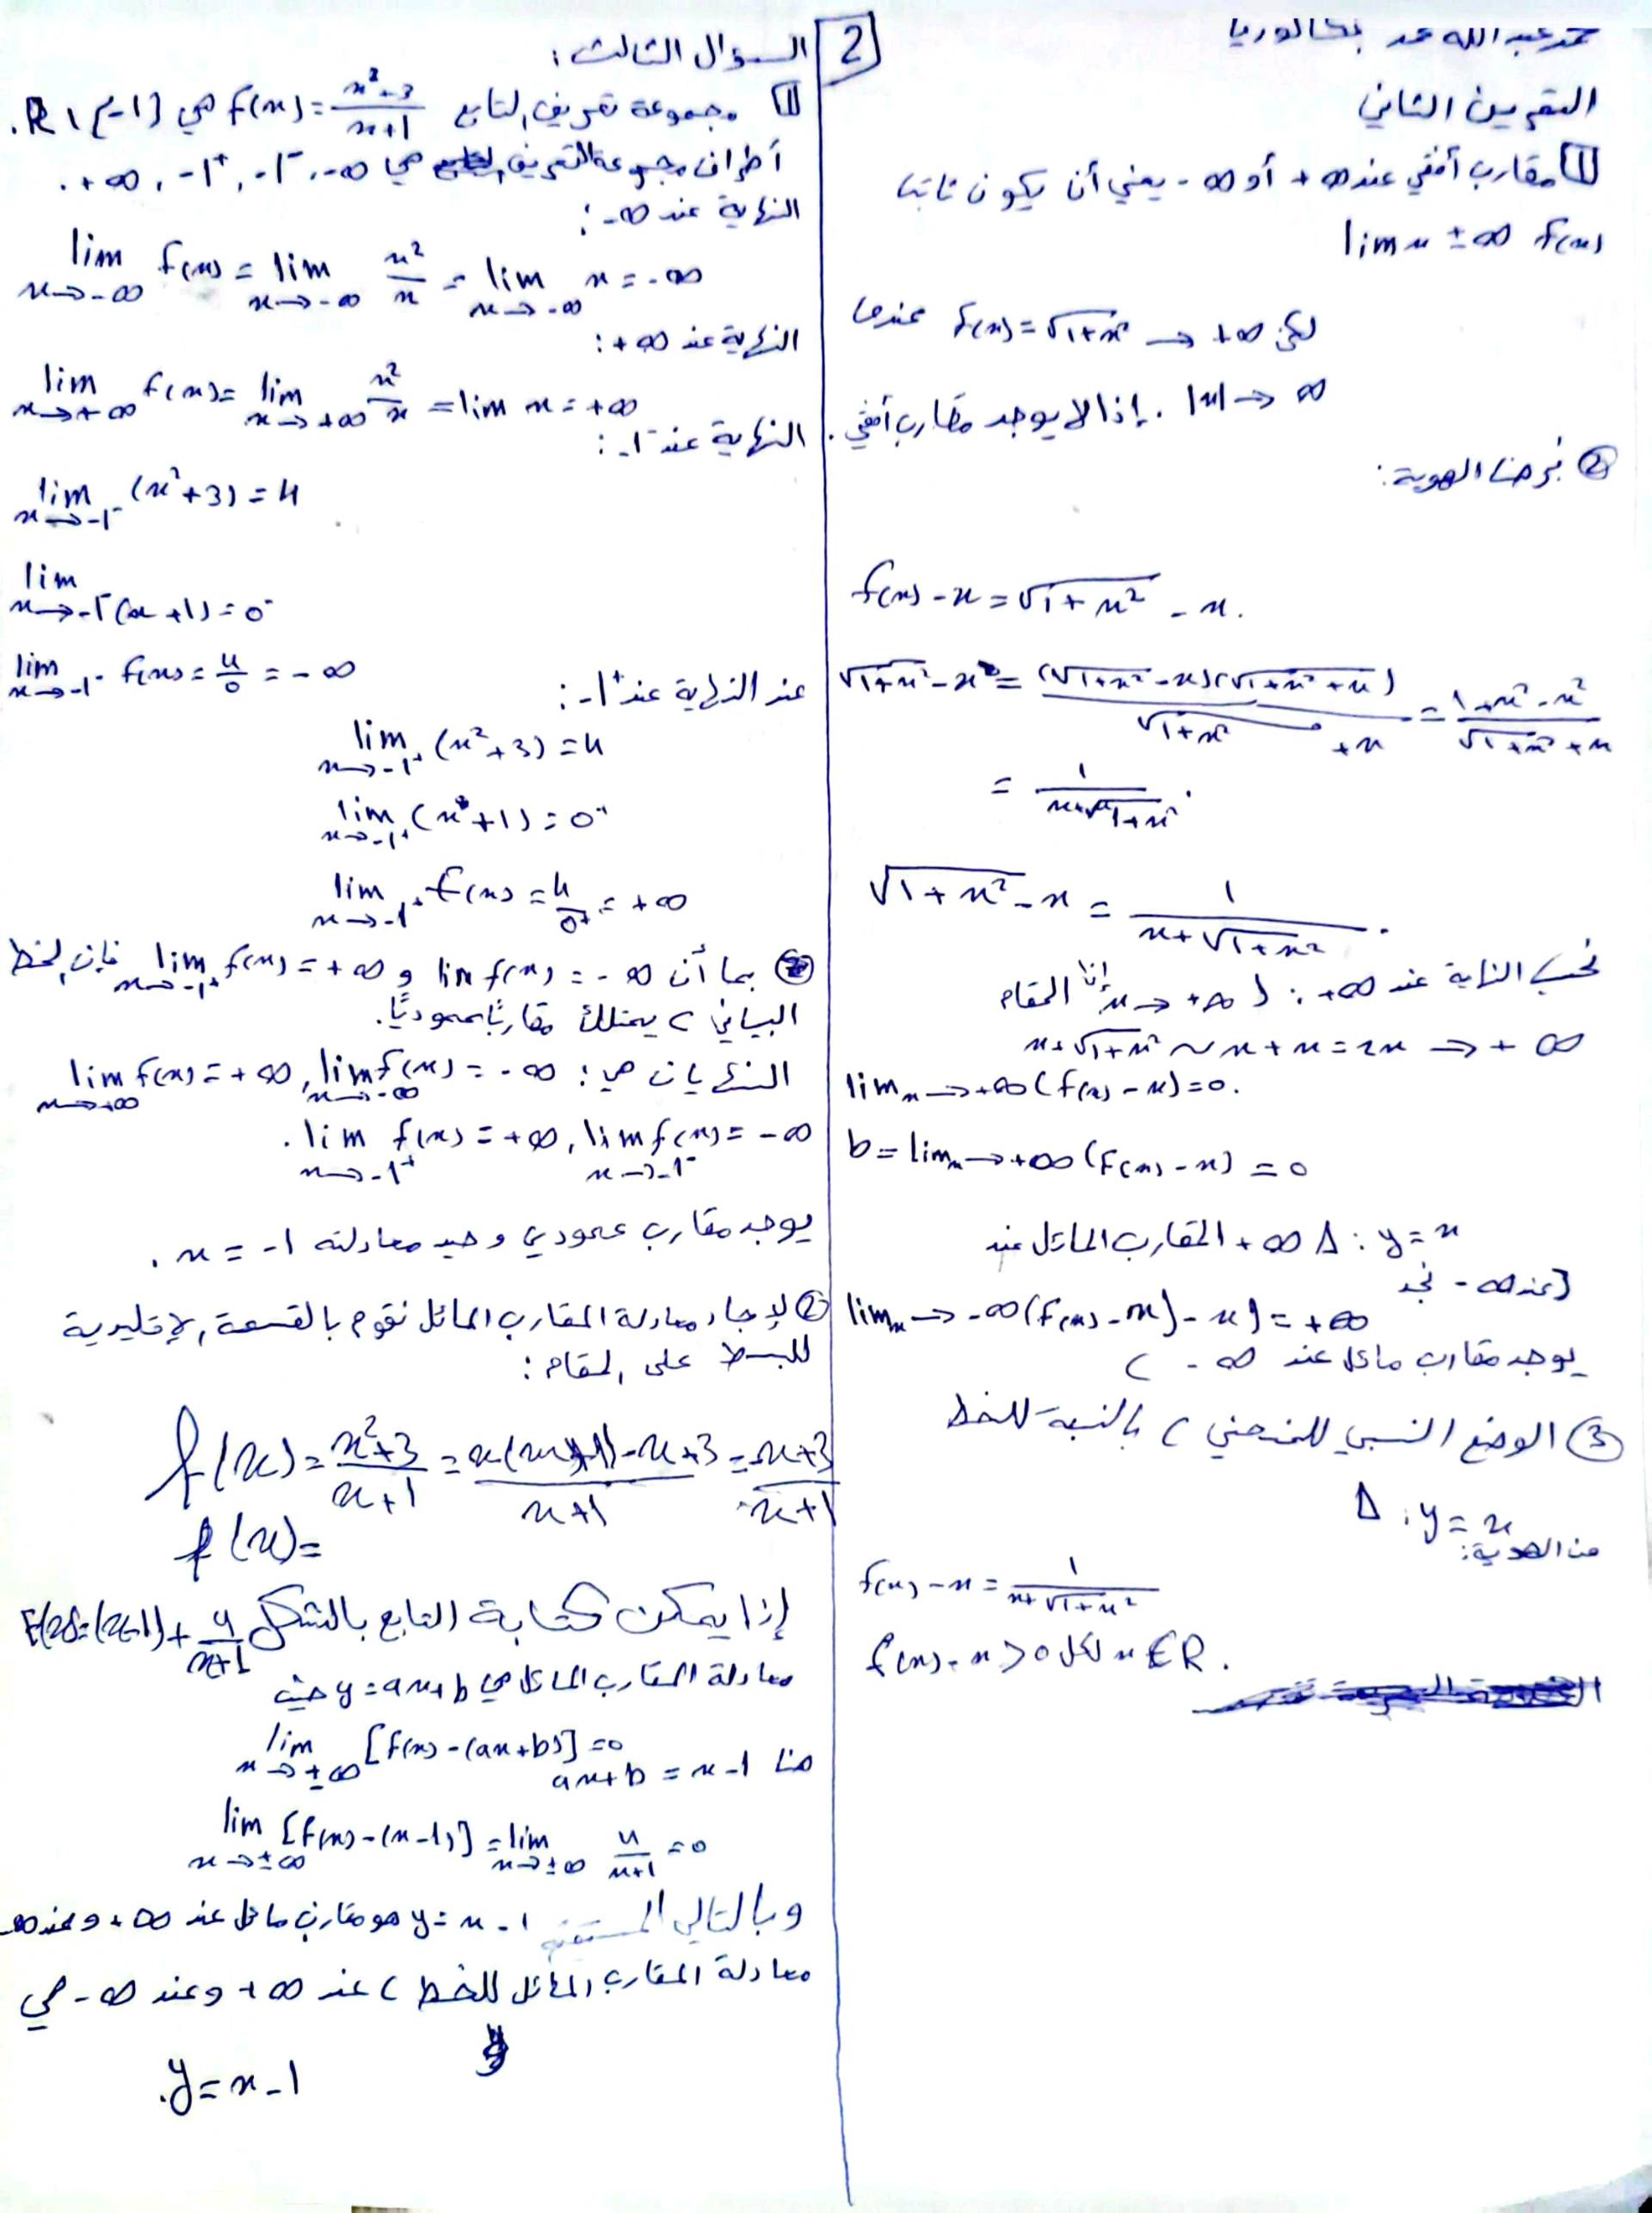 محمد عبد الله محمد بكالوريا
التمرين الثاني
1 مقارب أفقي عند ∞+ أو ∞- يعني أن يكون ثابتا
lim x ± ∞ f(x)
لكن f(x) = √1+x² → +∞ عندما
|x| → ∞ . إذا لا يوجد مقارب أفقي.
② فرضنا الهوية:
f(x) - x = √1+x² - x.
√1+x² - x = (√1+x² - x)(√1+x² + x) / √1+x² + x = 1+x²-x² / √1+x² + x
= 1 / x+√1+x² .
√1+x² - x = 1 / x+√1+x² .
نحسب النهاية عند ∞+ : ( x → +∞ إذا المقام
x+√1+x² ~ x+x = 2x → + ∞
lim x → +∞ (f(x) - x) = 0.
b = lim x → +∞ (f(x) - x) = 0
y = x : Δ ∞+ المقارب المائل عند
عند ∞- نجد
lim x → -∞ (f(x) - x) = +∞
يوجد مقارب مائل عند ∞- C
③ الوضع النسبي للمنحني C بالنسبة للخط
Δ : y = x
من الهوية:
f(x) - x = 1 / x+√1+x²
f(x) - x > 0 لكل x ∈ R .
2
السؤال الثالث :
1 مجموعة تعريف التابع f(x) = x²+3 / x+1 هي R \ {-1} .
أطراف مجموعة التعريف هي ∞-, -1⁻, -1⁺, ∞+ .
النهاية عند ∞- :
lim x→-∞ f(x) = lim x→-∞ x²/x = lim x→-∞ x = -∞
النهاية عند ∞+ :
lim x→+∞ f(x) = lim x→+∞ x²/x = lim x = +∞
النهاية عند -1⁻ :
lim x→-1⁻ (x²+3) = 4
lim x→-1⁻ (x+1) = 0⁻
lim x→-1⁻ f(x) = 4/0 = -∞
عند النهاية عند -1⁺ :
lim x→-1⁺ (x²+3) = 4
lim x→-1⁺ (x+1) = 0⁺
lim x→-1⁺ f(x) = 4/0⁺ = +∞
بما أن lim f(x) = -∞ و lim x→-1⁺ f(x) = +∞ فإن الخط
البياني C يمتلك مقاربًا عموديًا.
النهايات هي : lim x→-∞ f(x) = -∞ , lim x→+∞ f(x) = +∞
lim x→-1⁻ f(x) = -∞ , lim x→-1⁺ f(x) = +∞ .
يوجد مقارب عمودي وحيد معادلته x = -1 .
② لإيجاد معادلة المقارب المائل نقوم بالقسمة الإقليدية
للبسط على المقام :
f(x) = x²+3 / x+1 = x(x+1)-x+3 / x+1 = -x+3 / x+1
f(x) =
إذا يمكن كتابة التابع بالشكل f(x) = (x-1) + 4/x+1
معادلة المقارب المائل هي y = ax+b حيث
lim x→±∞ [f(x) - (ax+b)] = 0
هنا ax+b = x-1
lim x→±∞ [f(x) - (x-1)] = lim x→±∞ 4/x+1 = 0
وبالتالي المستقيم y = x-1 هو مقارب مائل عند ∞+ وعند ∞-
معادلة المقارب المائل للخط C عند ∞+ وعند ∞- هي
y = x-1.